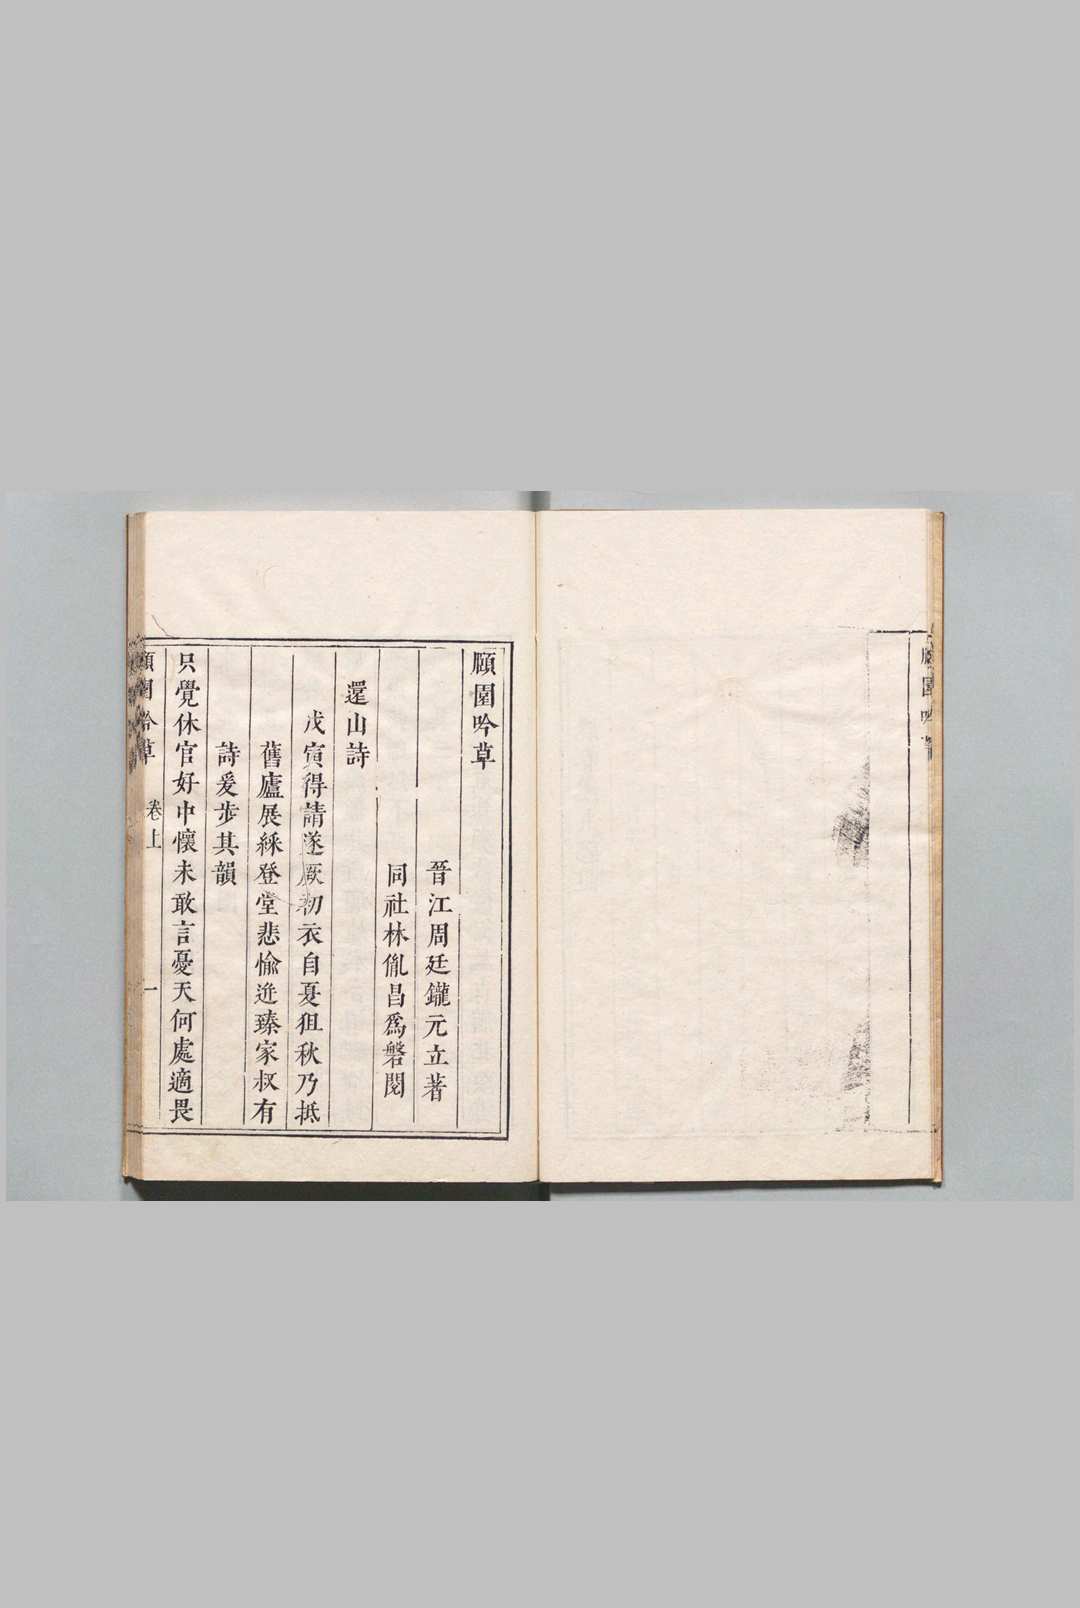 頤園吟草
頤園吟草
晉江周廷鑨元立著
同社林胤昌爲磐閱
還山詩
戊寅得請遂厥初衣自夏徂秋乃抵
舊廬展綵登堂悲愉迸臻家叔有
詩爰步其韻
只覺休官好中懷未敢言憂天何處適畏
頤園吟草 卷上 一